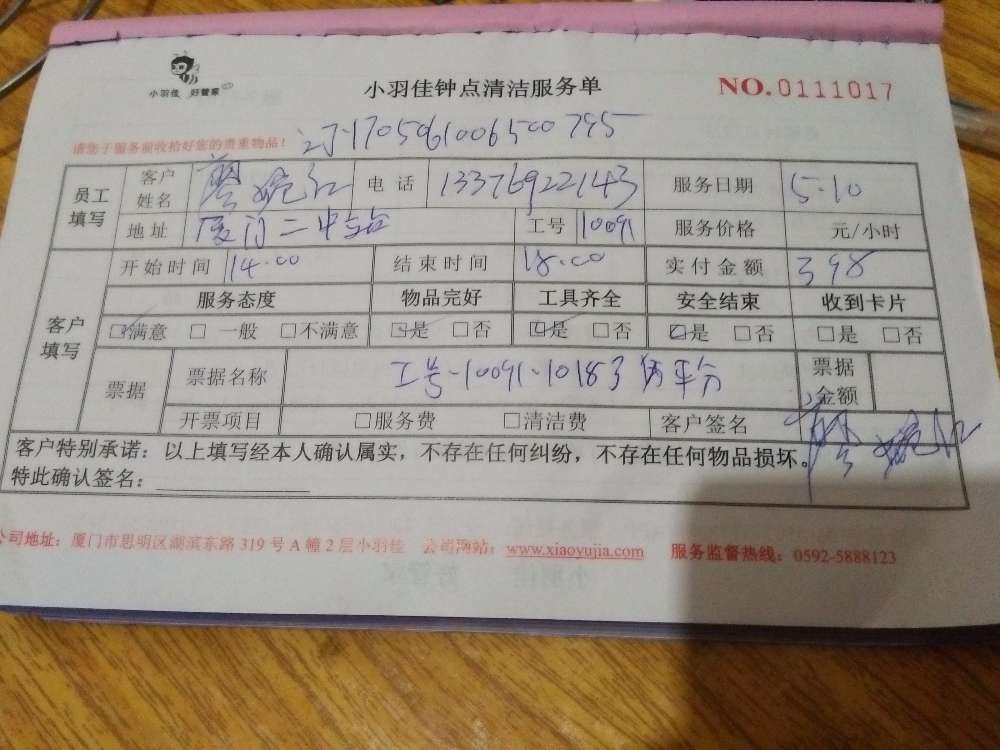 小羽佳 好管家
小羽佳钟点清洁服务单
NO.0111017
请您于服务前收拾好您的贵重物品!
订170506100650079​5
员工填写 客户姓名 婉红 电话 13376922143 服务日期 5.10
地址 厦门二中 工号 10091 服务价格 元/小时
客户填写 开始时间 14.00 结束时间 18.00 实付金额 398
服务态度 物品完好 工具齐全 安全结束 收到卡片
☑满意 □一般 □不满意 ☑是 □否 ☑是 □否 ☑是 □否 □是 □否
票据 票据名称 工号-10091-10183 平分 票据金额
开票项目 □服务费 □清洁费 客户签名 婉红
客户特别承诺:以上填写经本人确认属实,不存在任何纠纷,不存在任何物品损坏。
特此确认签名:
公司地址:厦门市思明区湖滨东路 319 号 A 幢 2 层小羽佳 公司网站:www.xiaoyujia.com 服务监督热线:0592-5888123